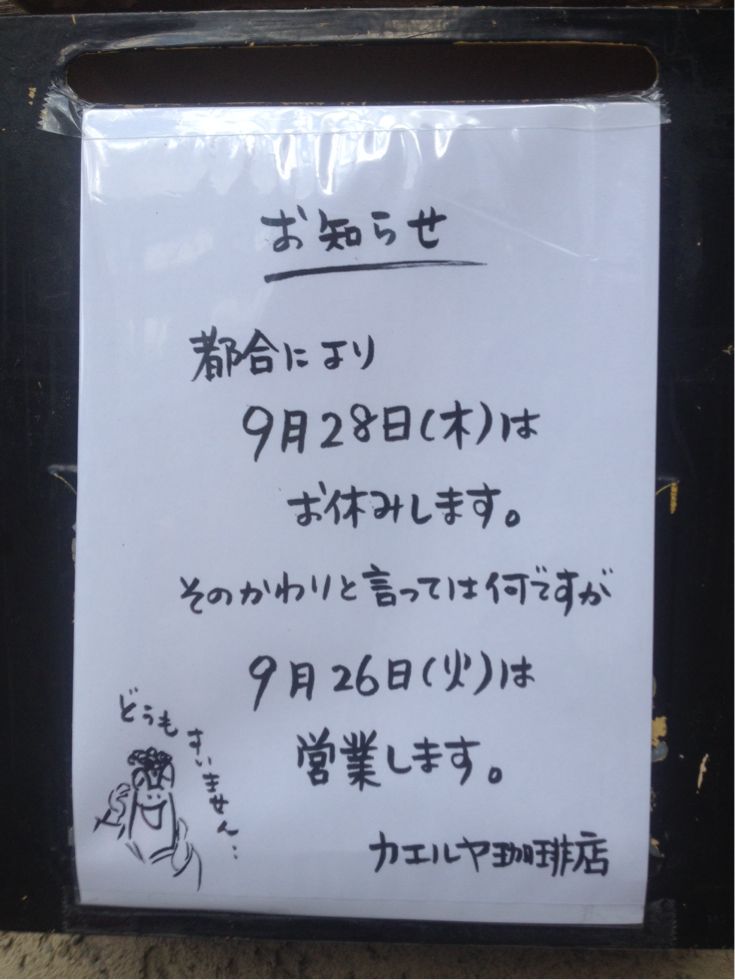 お知らせ
都合により
9月28日(木)は
お休みします。
そのかわりと言っては何ですが
9月26日(火)は
営業します。
どうもすいません…
カエルヤ珈琲店